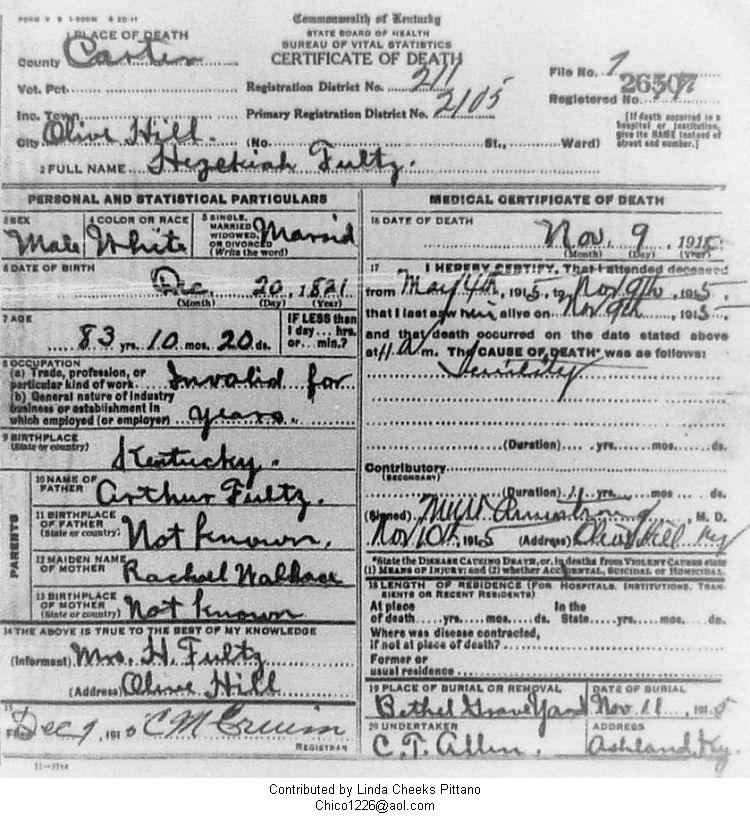 FORM V S 1-500M 6 20-11
Commonwealth of Kentucky
STATE BOARD OF HEALTH
BUREAU OF VITAL STATISTICS
CERTIFICATE OF DEATH
1 PLACE OF DEATH
County Carter
Vot. Pct.
Inc. Town
City Olive Hill. (No. St., Ward)
Registration District No. 211
Primary Registration District No. 2105
File No. 1
26507
Registered No.
[If death occurred in a
hospital or institution,
give its NAME instead of
street and number.]
2 FULL NAME Hezekiah Fultz.
PERSONAL AND STATISTICAL PARTICULARS
3 SEX
Male
4 COLOR OR RACE
White
5 SINGLE,
MARRIED
WIDOWED,
OR DIVORCED
(Write the word)
Married
6 DATE OF BIRTH
Dec. 20, 1821
(Month) (Day) (Year)
7 AGE
83 yrs. 10 mos. 20 ds.
IF LESS than
1 day... hrs.
or... min.?
8 OCCUPATION
(a) Trade, profession, or
particular kind of work Invalid for
(b) General nature of industry
business or establishment in
which employed (or employer) years.
9 BIRTHPLACE
(State or country)
Kentucky.
PARENTS
10 NAME OF
FATHER
Arthur Fultz.
11 BIRTHPLACE
OF FATHER
(State or country)
Not known.
12 MAIDEN NAME
OF MOTHER
Rachael Wallace
13 BIRTHPLACE
OF MOTHER
(State or country)
Not known
14 THE ABOVE IS TRUE TO THE BEST OF MY KNOWLEDGE
(Informant) Mrs. H. Fultz
(Address) Olive Hill
15
Filed Dec 1, 1915 C M
REGISTRAR
11-3184
MEDICAL CERTIFICATE OF DEATH
16 DATE OF DEATH
Nov. 9, 1915
(Month) (Day) (Year)
17 I HEREBY CERTIFY, That I attended deceased
from May 4th, 1915, to Nov 9th, 1915,
that I last saw him alive on Nov 9th, 1915,
and that death occurred on the date stated above
at 11 A m. The CAUSE OF DEATH* was as follows:
Senility
(Duration) yrs. mos. ds.
Contributory
(SECONDARY)
(Duration) yrs. mos. ds.
(Signed) Armstrong, M. D.
Nov 10th, 1915 (Address) Olive Hill Ky
*State the DISEASE CAUSING DEATH, or, in deaths from VIOLENT CAUSES state
(1) MEANS OF INJURY; and (2) whether ACCIDENTAL, SUICIDAL or HOMICIDAL.
18 LENGTH OF RESIDENCE (FOR HOSPITALS, INSTITUTIONS, TRANSIENTS OR RECENT RESIDENTS)
At place In the
of death yrs. mos. ds. State yrs. mos. ds.
Where was disease contracted,
if not at place of death?
Former or
usual residence
19 PLACE OF BURIAL OR REMOVAL
Bethel Grave Yard
DATE OF BURIAL
Nov. 11, 1915
20 UNDERTAKER
C. T. Allen.
ADDRESS
Ashland, Ky.
Contributed by Linda Cheeks Pittano
Chico1226@aol.com